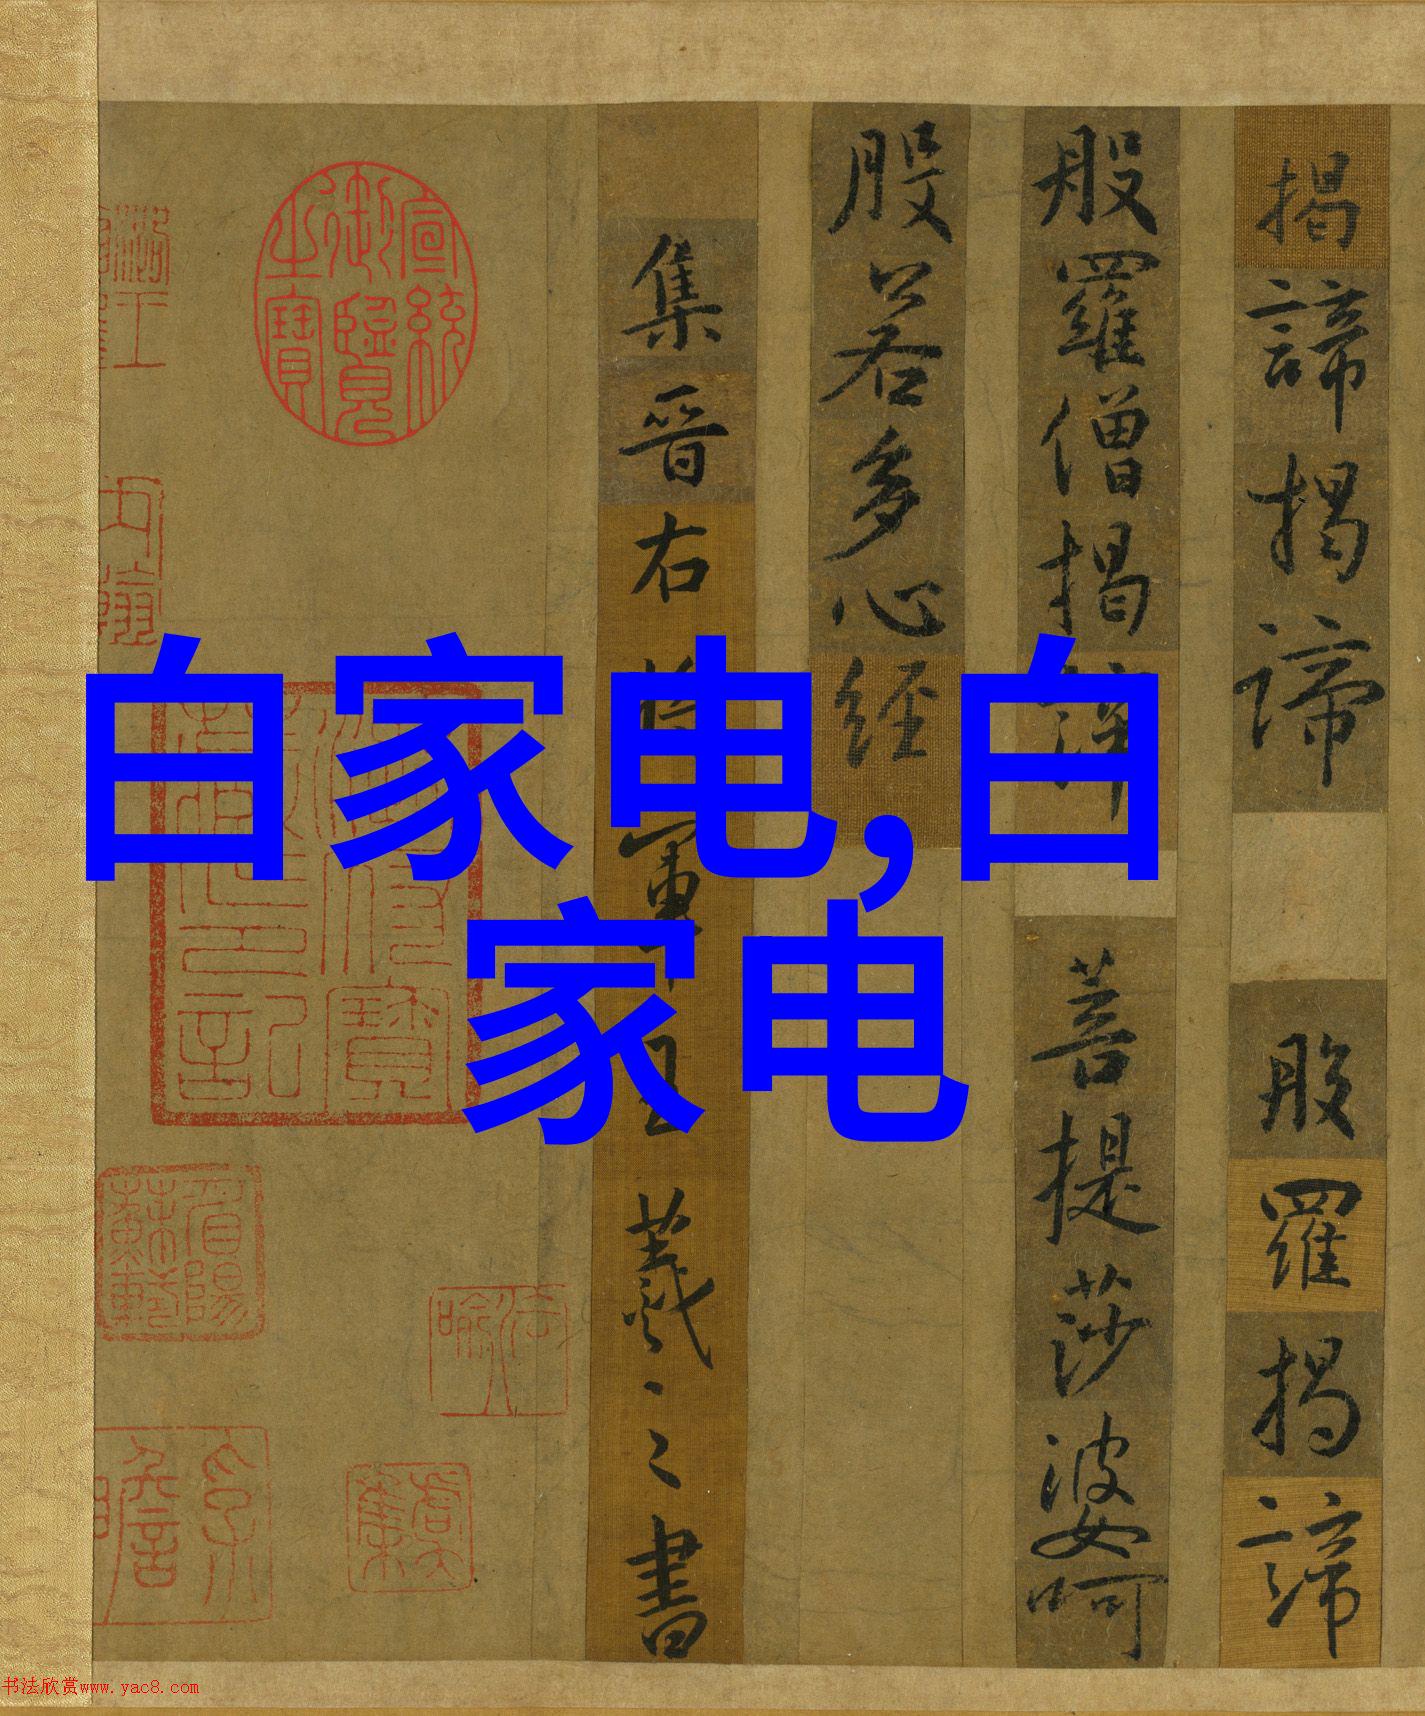 白家电,白
家电
揭諦揭諦般羅揭諦
般羅僧揭諦菩提莎婆呵
般若多心经
集晋右將軍王羲之書
宣統御覽之寶
书法欣赏www.yac8.com